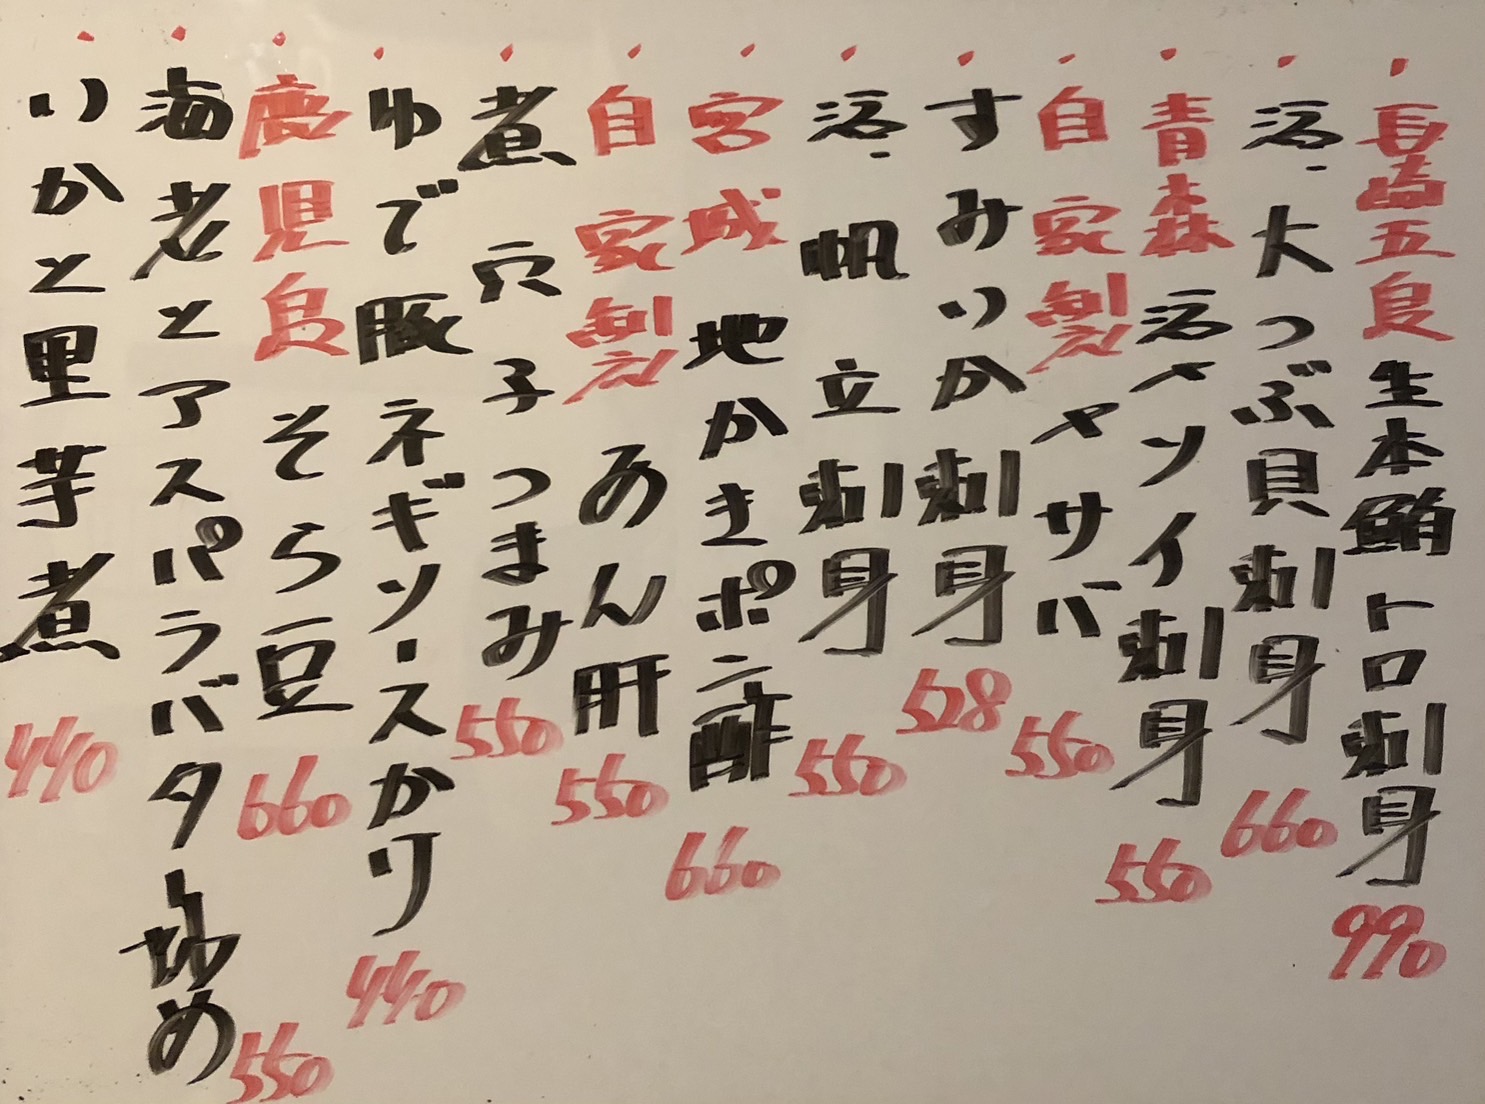 ・長崎五島 生本鮪トロ刺身 990
・活〆大つぶ貝刺身 660
・青森 活〆ソイ刺身 550
・自家製 〆サバ 550
・すみいか刺身 528
・活〆帆立刺身 550
・宮城 地かきポン酢 660
・自家製 あん肝 550
・煮穴子つまみ 550
・ゆで豚ネギソースかけ 440
・鹿児島 そら豆 660
・海老とアスパラバター炒め 550
・いかと里芋煮 440